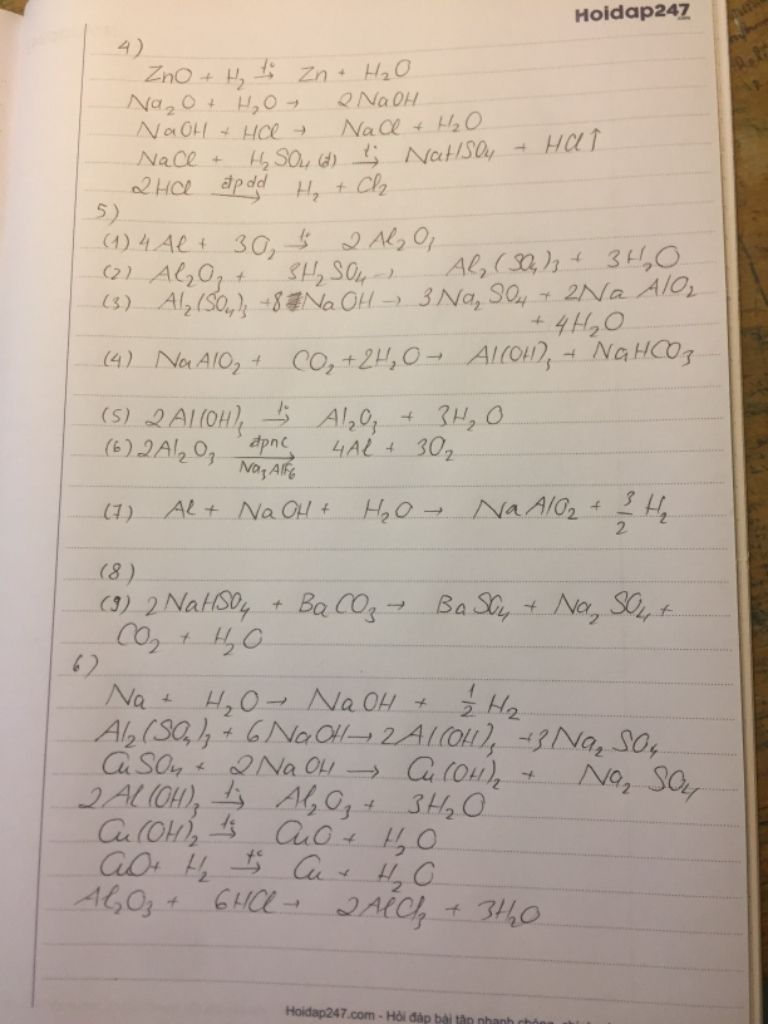 Hoidap247
4)
ZnO + H₂ t°→ Zn + H₂O
Na₂O + H₂O → 2NaOH
NaOH + HCl → NaCl + H₂O
NaCl + H₂SO₄ (đ) t°→ NaHSO₄ + HCl↑
2HCl đpdd→ H₂ + Cl₂
5)
(1) 4Al + 3O₂ t°→ 2Al₂O₃
(2) Al₂O₃ + 3H₂SO₄ → Al₂(SO₄)₃ + 3H₂O
(3) Al₂(SO₄)₃ + 8NaOH → 3Na₂SO₄ + 2NaAlO₂
+ 4H₂O
(4) NaAlO₂ + CO₂ + 2H₂O → Al(OH)₃ + NaHCO₃
(5) 2Al(OH)₃ t°→ Al₂O₃ + 3H₂O
(6) 2Al₂O₃ đpnc→ 4Al + 3O₂
Na₃AlF₆
(7) Al + NaOH + H₂O → NaAlO₂ + 3/2 H₂
(8)
(9) 2NaHSO₄ + BaCO₃ → BaSO₄ + Na₂SO₄ +
CO₂ + H₂O
6)
Na + H₂O → NaOH + 1/2 H₂
Al₂(SO₄)₃ + 6NaOH → 2Al(OH)₃ + 3Na₂SO₄
CuSO₄ + 2NaOH → Cu(OH)₂ + Na₂SO₄
2Al(OH)₃ t°→ Al₂O₃ + 3H₂O
Cu(OH)₂ t°→ CuO + H₂O
CuO + H₂ t°→ Cu + H₂O
Al₂O₃ + 6HCl → 2AlCl₃ + 3H₂O
Hoidap247.com - Hỏi đáp bài tập nhanh chóng,